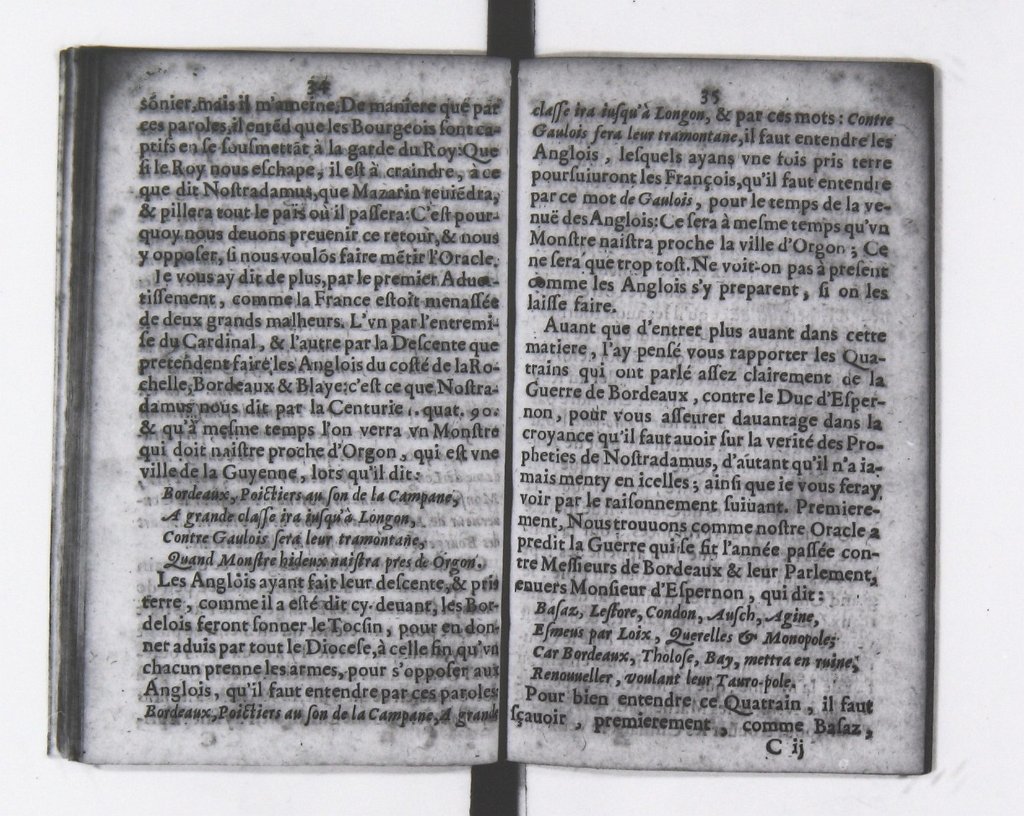 34
sónier, mais il m'ameine, De maniere que par
ces paroles, il entéd que les Bourgeois sont ca-
ptifs en se sousmettāt à la garde du Roy: Que
si le Roy nous eschape, il est à craindre, à ce
que dit Nostradamus, que Mazarin reuiédra,
& pillera tout le païs où il passera: C'est pour-
quoy nous deuons preuenir ce retour, & nous
y opposer, si nous voulōs faire métir l'Oracle.
Ie vous ay dit de plus, par le premier Aduer-
tissement, comme la France estoit menassée
de deux grands malheurs. L'vn par l'entremi-
se du Cardinal, & l'autre par la Descente que
pretendent faire les Anglois du costé de la Ro-
chelle, Bordeaux & Blaye: c'est ce que Nostra-
damus nous dit par la Centurie 1. quat. 90.
& qu'à mesme temps l'on verra vn Monstre
qui doit naistre proche d'Orgon, qui est vne
ville de la Guyenne, lors qu'il dit:
Bordeaux, Poictiers au son de la Campane,
A grande classe ira iusqu'à Longon,
Contre Gaulois sera leur tramontane,
Quand Monstre hideux naistra pres de Orgon.
Les Anglois ayant fait leur descente, & pris
terre, comme il a esté dit cy-deuant, les Bor-
delois feront sonner le Tocsin, pour en don-
ner aduis par tout le Diocese, à celle fin qu'vn
chacun prenne les armes, pour s'opposer aux
Anglois, qu'il faut entendre par ces paroles
Bordeaux, Poictiers au son de la Campane, A grande
35
classe ira iusqu'à Longon, & par ces mots: Contre
Gaulois sera leur tramontane, il faut entendre les
Anglois, lesquels ayans vne fois pris terre
poursuiuront les François, qu'il faut entendre
par ce mot de Gaulois, pour le temps de la ve-
nuë des Anglois: Ce sera à mesme temps qu'vn
Monstre naistra proche la ville d'Orgon; Ce
ne sera que trop tost. Ne voit-on pas à present
comme les Anglois s'y preparent, si on les
laisse faire.
Auant que d'entrer plus auant dans cette
matiere, i'ay pensé vous rapporter les Qua-
trains qui ont parlé assez clairement de la
Guerre de Bordeaux, contre le Duc d'Esper-
non, pour vous asseurer dauantage dans la
croyance qu'il faut auoir sur la verité des Pro-
pheties de Nostradamus, d'autant qu'il n'a ia-
mais menty en icelles; ainsi que ie vous feray
voir par le raisonnement suiuant. Premiere-
ment, Nous trouuons comme nostre Oracle a
predit la Guerre qui se fit l'année passée con-
tre Messieurs de Bordeaux & leur Parlement,
enuers Monsieur d'Espernon, qui dit:
Basaz, Lestore, Condon, Ausch, Agine,
Esmeus par Loix, Querelles & Monopole;
Car Bordeaux, Tholose, Bay, mettra en ruine,
Renouueller, voulant leur Tauro-pole.
Pour bien entendre ce Quatrain, il faut
sçauoir, premierement, comme Basaz,
C ij